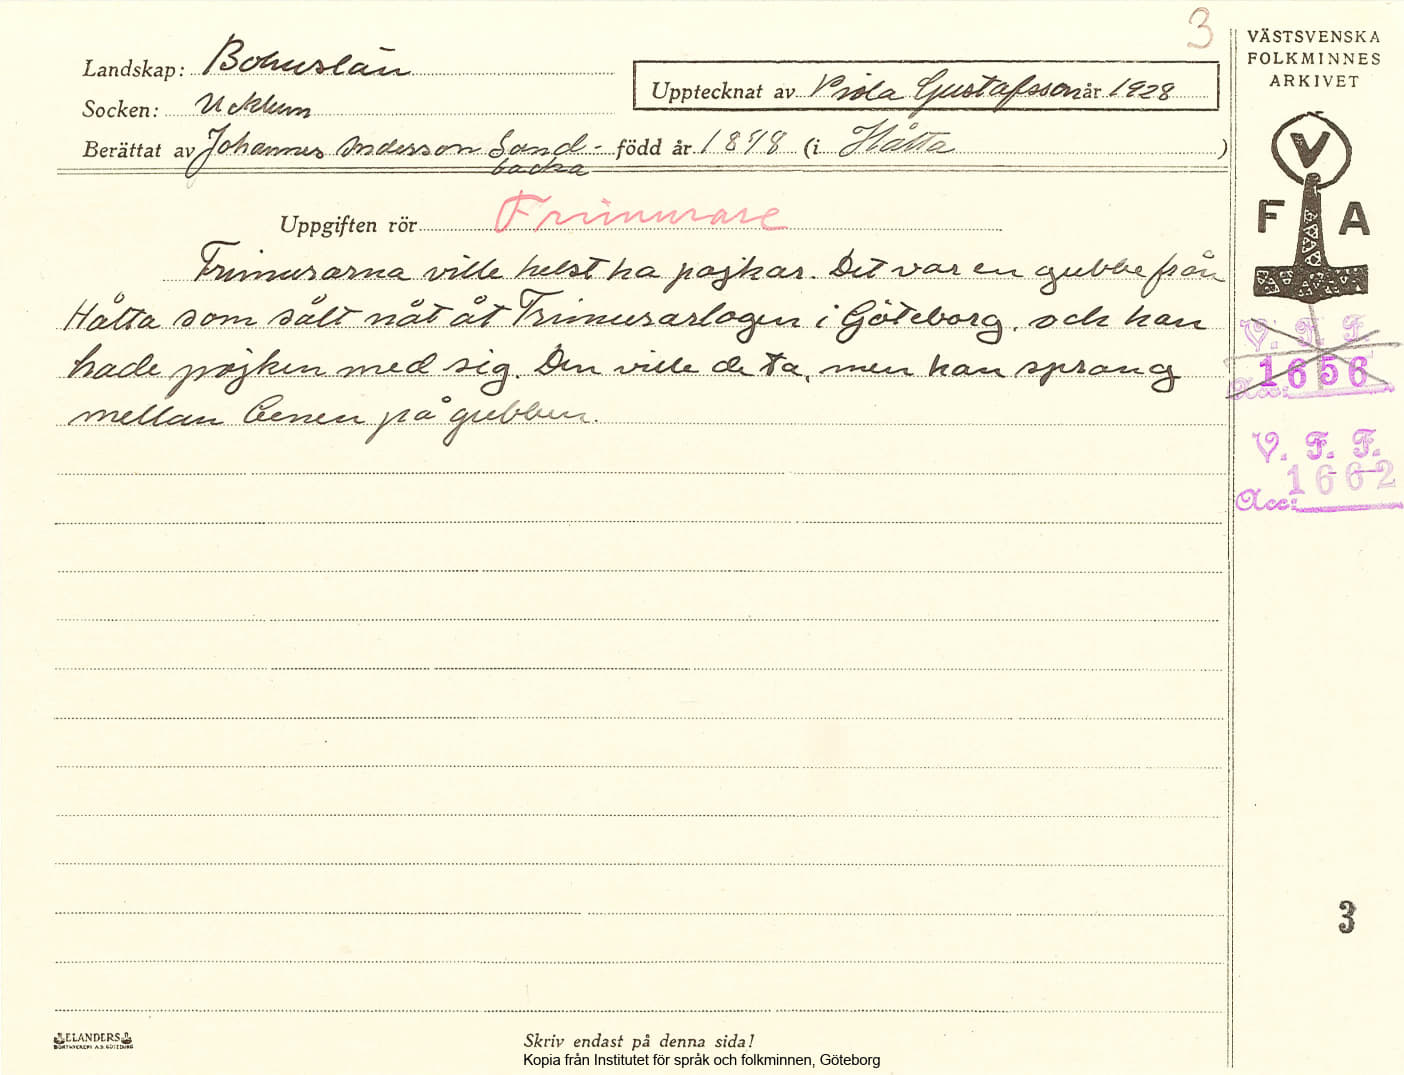 3
VÄSTSVENSKA
FOLKMINNES
ARKIVET
Landskap: Bohuslän
Upptecknat av Viola Gustafsson år 1928
Socken: Ucklum
Berättat av Johannes Andersson Sand- född år 1848 (i Håtta )
backa
V
F A
Uppgiften rör Frimurare
Frimurarna ville helst ha pojkar. Det var en gubbe från
Håtta som sålt nåt åt Frimurarlogen i Göteborg, och han
hade pojken med sig. Den ville de ta, men han sprang
mellan benen på gubben.
V. F. F.
1656
Acc:
V. F. F.
1662
Acc:
3
ELANDERS
Skriv endast på denna sida!
Kopia från Institutet för språk och folkminnen, Göteborg